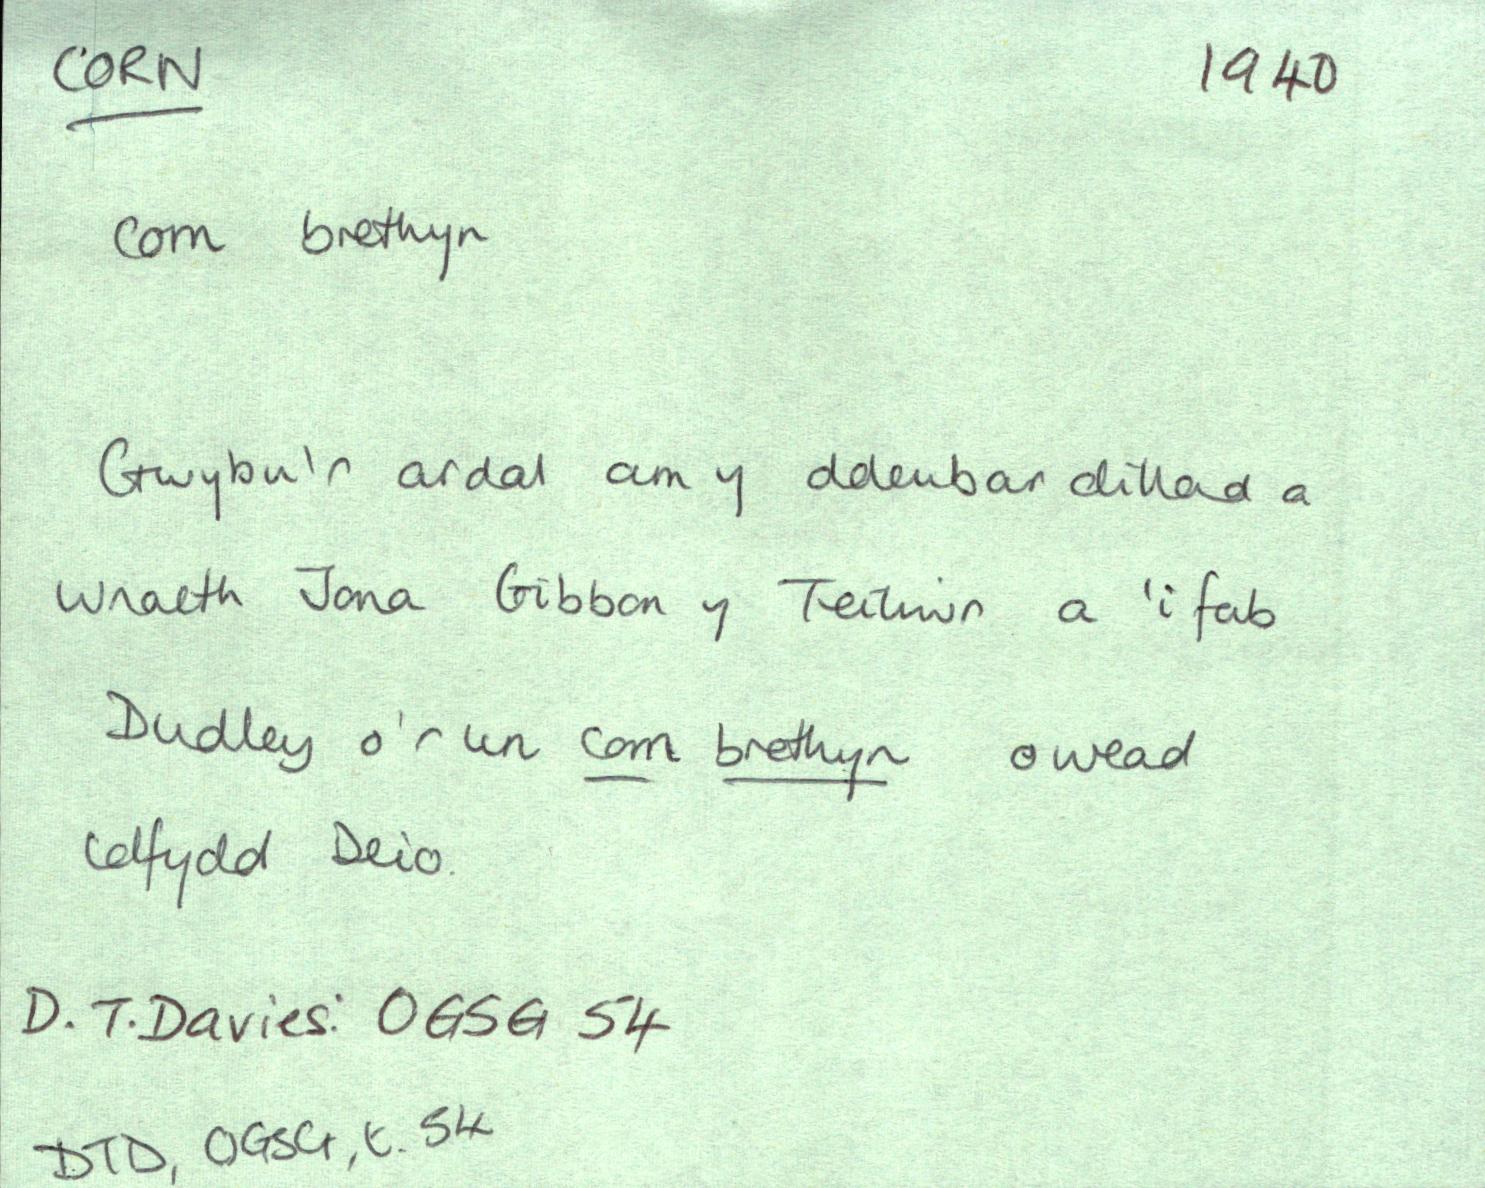 CORN 1940
corn brethyn
Gwybu'r ardal am y ddeubar dillad a
wnaeth Jona Gibbon y Teiliwr a 'i fab
Dudley o'r un corn brethyn o wead
celfydd Deio.
D. T. Davies: OGSG 54
DTD, OGSG, t. 54